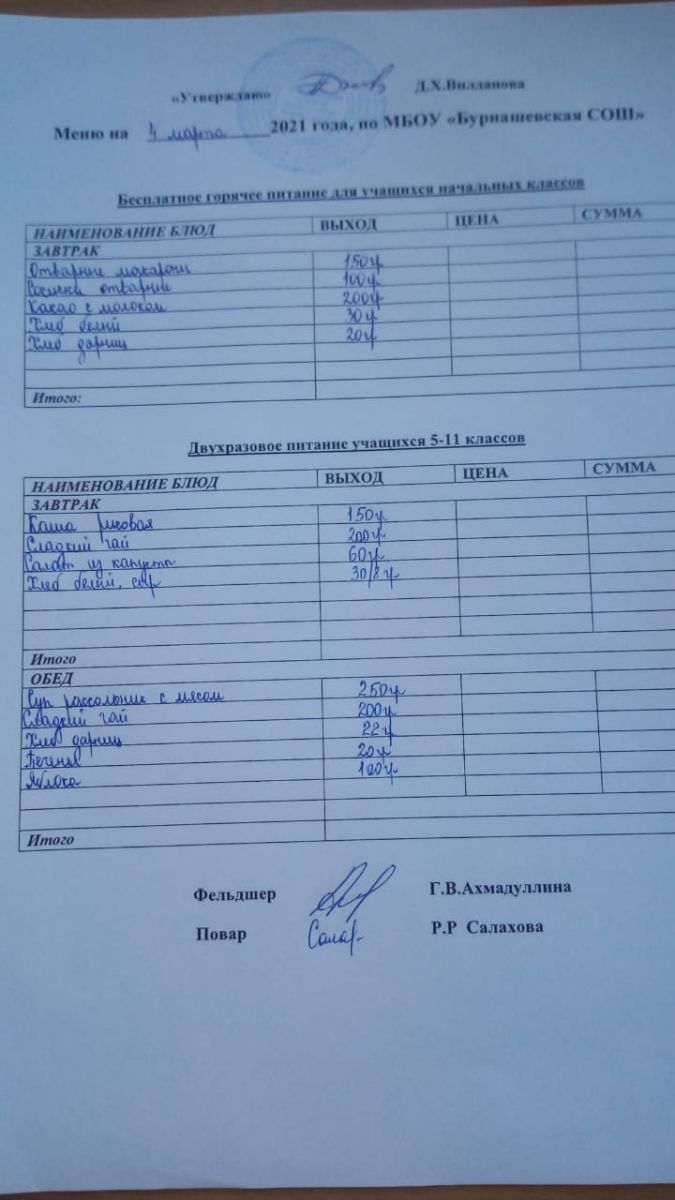 «Утверждаю» Д.Х.Вилданова
Меню на 4 марта 2021 года, по МБОУ «Бурнашевская СОШ»
Бесплатное горячее питание для учащихся начальных классов
НАИМЕНОВАНИЕ БЛЮД ВЫХОД ЦЕНА СУММА
ЗАВТРАК
Отварные макароны 150г
Сосиски отварные 100г
Какао с молоком 200г
Хлеб белый 30г
Хлеб дарниц 20г
Итого:
Двухразовое питание учащихся 5-11 классов
НАИМЕНОВАНИЕ БЛЮД ВЫХОД ЦЕНА СУММА
ЗАВТРАК
Каша рисовая 150г
Сладкий чай 200г
Салат из капусты 60г
Хлеб белый, сыр 30/8г
Итого
ОБЕД
Суп рассольник с мясом 250г
Сладкий чай 200г
Хлеб дарниц 22г
Печенье 20г
Яблоко 100г
Итого
Фельдшер Г.В.Ахмадуллина
Повар Салах- Р.Р Салахова